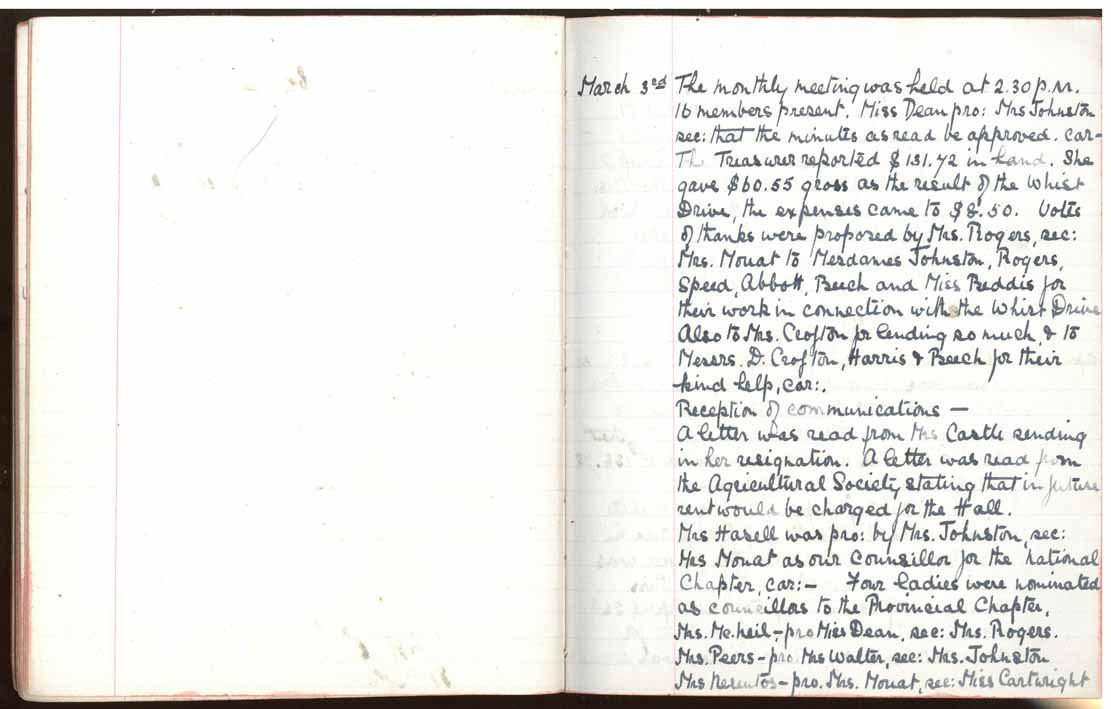 March 3rd The monthly meeting was held at 2.30 p.m.
16 members present. Miss Dean pro: Mrs Johnston
sec: that the minutes as read be approved. car-
The Treasurer reported $131.72 in hand. She
gave $60.55 gross as the result of the Whist
Drive, the expenses came to $8.50. Votes
of thanks were proposed by Mrs. Rogers, sec:
Mrs. Mouat to Mesdames Johnston, Rogers,
Speed, Abbott, Beech and Miss Beddis for
their work in connection with the Whist Drive
Also to Mrs. Crofton for lending so much, & to
Messrs. D. Crofton, Harris & Beech for their
kind help, car:.
Reception of communications —
A letter was read from Mrs. Castle sending
in her resignation. A letter was read from
the Agricultural Society stating that in future
rent would be charged for the Hall.
Mrs Hasell was pro: by Mrs. Johnston, sec:
Mrs Mouat as our Counsillor for the National
Chapter, car:- Four ladies were nominated
as councillors to the Provincial Chapter,
Mrs. McNeil - pro Miss Dean, sec: Mrs. Rogers.
Mrs. Peers - pro. Mrs Walter, sec: Mrs. Johnston
Mrs - pro. Mrs. Mouat, sec: Miss Cartwright